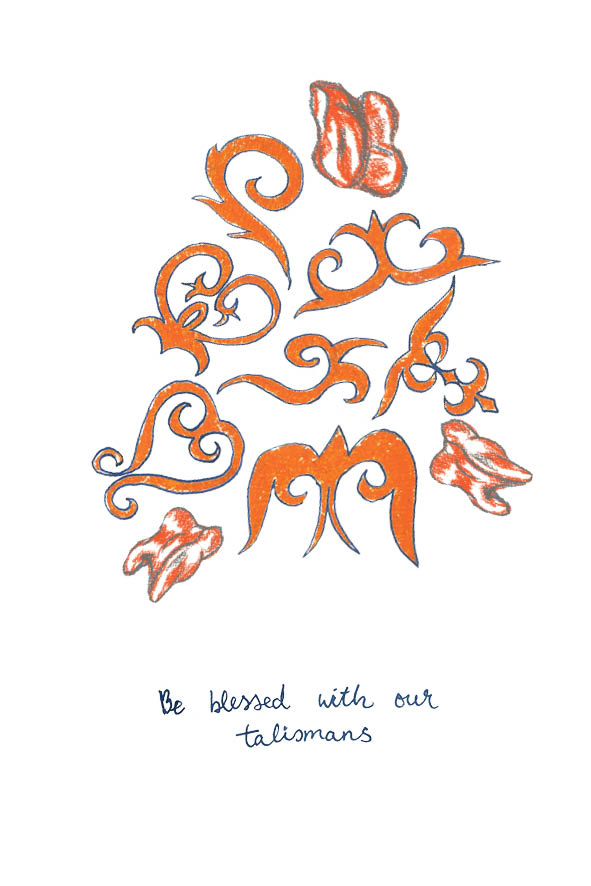 Be blessed with our
talismans